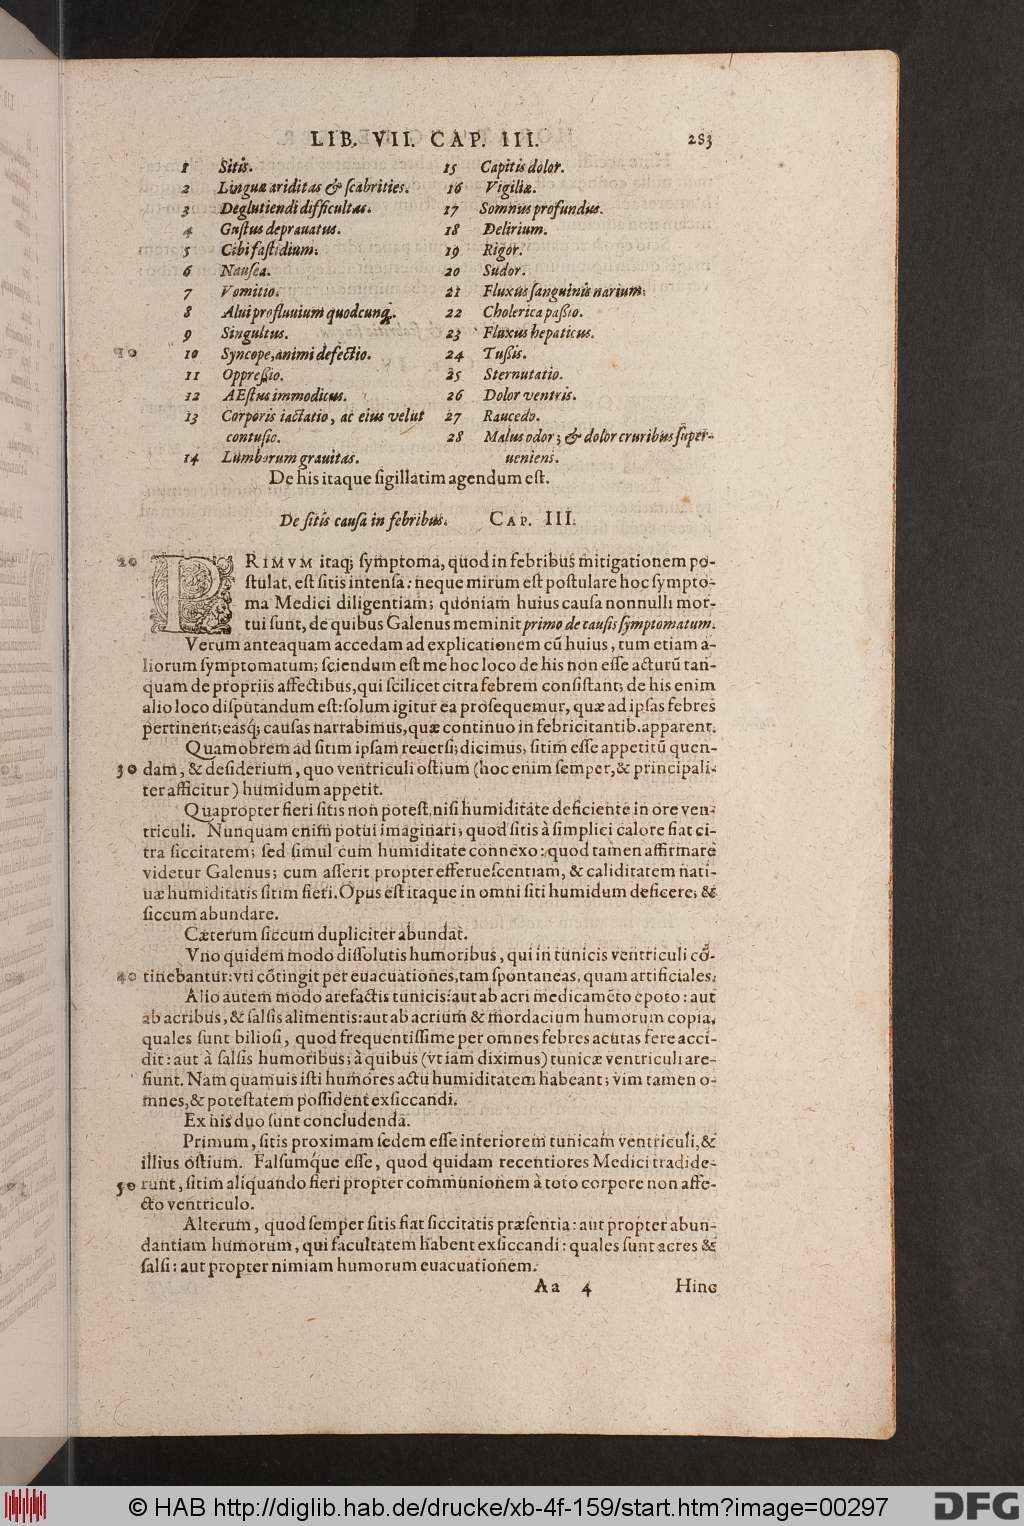 LIB. VII. CAP. III. 283
1 Sitis.
2 Linguæ ariditas & ſcabrities.
3 Deglutiendi difficultas.
4 Guſtus deprauatus.
5 Cibi faſtidium.
6 Nauſea.
7 Vomitio.
8 Alui profluuium quodcunq̃;.
9 Singultus.
10 Syncope, animi defectio.
11 Oppreſſio.
12 AEſtus immodicus.
13 Corporis iactatio, ac eius velut
contuſio.
14 Lumborum grauitas.
15 Capitis dolor.
16 Vigiliæ.
17 Somnus profundus.
18 Delirium.
19 Rigor.
20 Sudor.
21 Fluxus ſanguinis narium.
22 Cholerica paſſio.
23 Fluxus hepaticus.
24 Tuſſis.
25 Sternutatio.
26 Dolor ventris.
27 Raucedo.
28 Malus odor; & dolor cruribus ſuper-
ueniens.
De his itaque ſigillatim agendum eſt.
De ſitis cauſa in febribus. CAP. III.
20 PRIMVM itaq; ſymptoma, quod in febribus mitigationem po-
ſtulat, eſt ſitis intenſa: neque mirum eſt poſtulare hoc ſympto-
ma Medici diligentiam; quoniam huius cauſa nonnulli mor-
tui ſunt, de quibus Galenus meminit primo de cauſis ſymptomatum.
Verum anteaquam accedam ad explicationem cũ huius, tum etiam a-
liorum ſymptomatum; ſciendum eſt me hoc loco de his non eſſe acturũ tan-
quam de propriis affectibus, qui ſcilicet citra febrem conſiſtant; de his enim
alio loco diſputandum eſt: ſolum igitur ea proſequemur, quæ ad ipſas febres
pertinent; eaſq́; cauſas narrabimus, quæ continuo in febricitantib. apparent.
Quamobrem ad ſitim ipſam reuerſi; dicimus, ſitim eſſe appetitũ quen-
30 dam, & deſiderium, quo ventriculi oſtium (hoc enim ſemper, & principali-
ter afficitur) humidum appetit.
Quapropter fieri ſitis non poteſt, niſi humiditate deficiente in ore ven-
triculi. Nunquam enim potui imaginari, quod ſitis à ſimplici calore fiat ci-
tra ſiccitatem; ſed ſimul cum humiditate connexo: quod tamen affirmare
videtur Galenus; cum aſſerit propter efferueſcentiam, & caliditatem nati-
uæ humiditatis ſitim fieri. Opus eſt itaque in omni ſiti humidum deficere, &
ſiccum abundare.
Cæterum ſiccum dupliciter abundat.
Vno quidem modo diſſolutis humoribus, qui in tunicis ventriculi cõ-
40 tinebantur: vti cõtingit per euacuationes, tam ſpontaneas, quam artificiales.
Alio autem modo arefactis tunicis: aut ab acri medicamẽto epoto: aut
ab acribus, & ſalſis alimentis: aut ab acrium & mordacium humorum copia,
quales ſunt bilioſi, quod frequentiſſime per omnes febres acutas fere acci-
dit: aut à ſalſis humoribus; à quibus (vt iam diximus) tunicæ ventriculi are-
fiunt. Nam quamuis iſti humores actu humiditatem habeant; vim tamen o-
mnes, & poteſtatem poſſident exſiccandi.
Ex his duo ſunt concludenda.
Primum, ſitis proximam ſedem eſſe interiorem tunicam ventriculi, &
illius oſtium. Falſumq́ue eſſe, quod quidam recentiores Medici tradide-
50 runt, ſitim aliquando fieri propter communionem à toto corpore non affe-
cto ventriculo.
Alterum, quod ſemper ſitis fiat ſiccitatis præſentia: aut propter abun-
dantiam humorum, qui facultatem habent exſiccandi: quales ſunt acres &
ſalſi: aut propter nimiam humorum euacuationem.
Aa 4 Hinc
© HAB http://diglib.hab.de/drucke/xb-4f-159/start.htm?image=00297
DFG